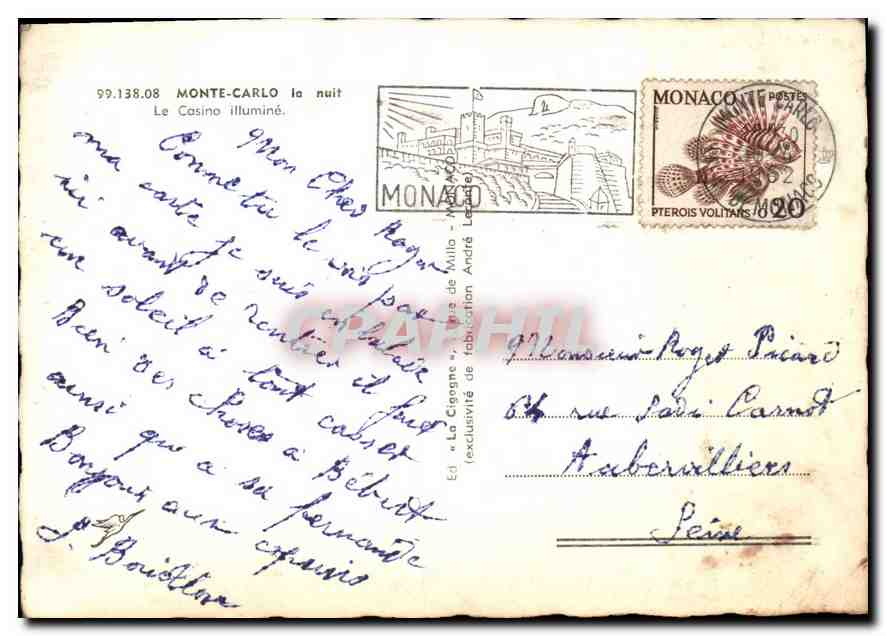 99.138.08 MONTE-CARLO la nuit
Le Casino illuminé.
Mon Cher Roger
Comme tu le vois par
ma carte je suis en balade
ici avant de rentrer il fait
un soleil à tout casser
Bien des choses à Bébert
ainsi qu'à sa fernande
Bonjour aux copains
MONACO
MONTE-CARLO
1962
Pté DE MONACO
MONACO POSTES
PTEROIS VOLITANS 0,20
Ed « La Cigogne », rue de Millo - MONACO
(exclusivité de fabrication André Leconte)
CPAPHIL
Monsieur Roger Picard
64 rue Sadi Carnot
Aubervilliers
Seine